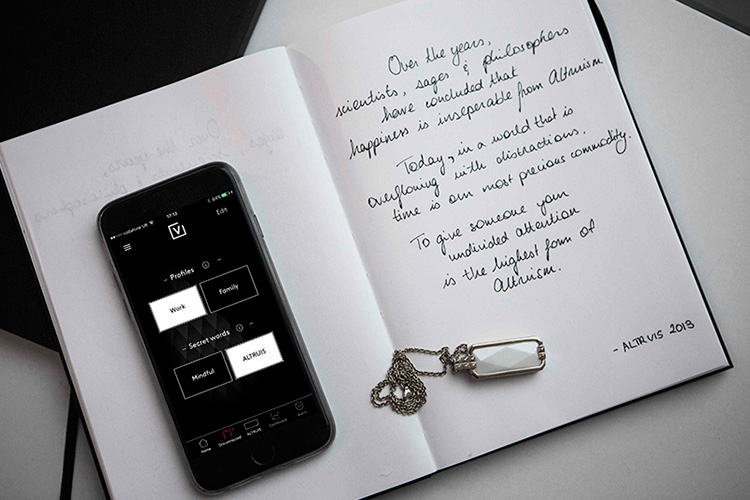 Over the years,
scientists, sages & philosophers
have concluded that
happiness is inseperable from Altruism
Today, in a world that is
overflowing with distractions,
time is our most precious commodity.
To give someone your
undivided attention
is the highest form of
Altruism.
- ALTRUIS 2019
vodafone UK 17:13 84%
Edit
V
Profiles
Work Family
Secret words
Mindful ALTRUIS
Home Disconnected ALTRUIS Dashboard Alarm
Over the years,